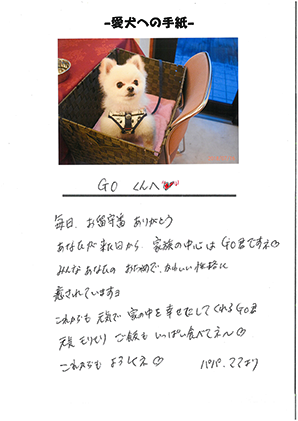 -愛犬への手紙-
GO くんへ
毎日、お留守番 ありがとう
あなたが来た日から 家族の中心は GO君ですネ♡
みんな あなたの おかげで、かわいい 性格に
癒されています♡
これからも 元気で 家の中を 幸せにしてくれる GO君
元気 モリモリ ご飯も いっぱい食べてネ♡
これからも よろしくネ♡ パパ、ママより